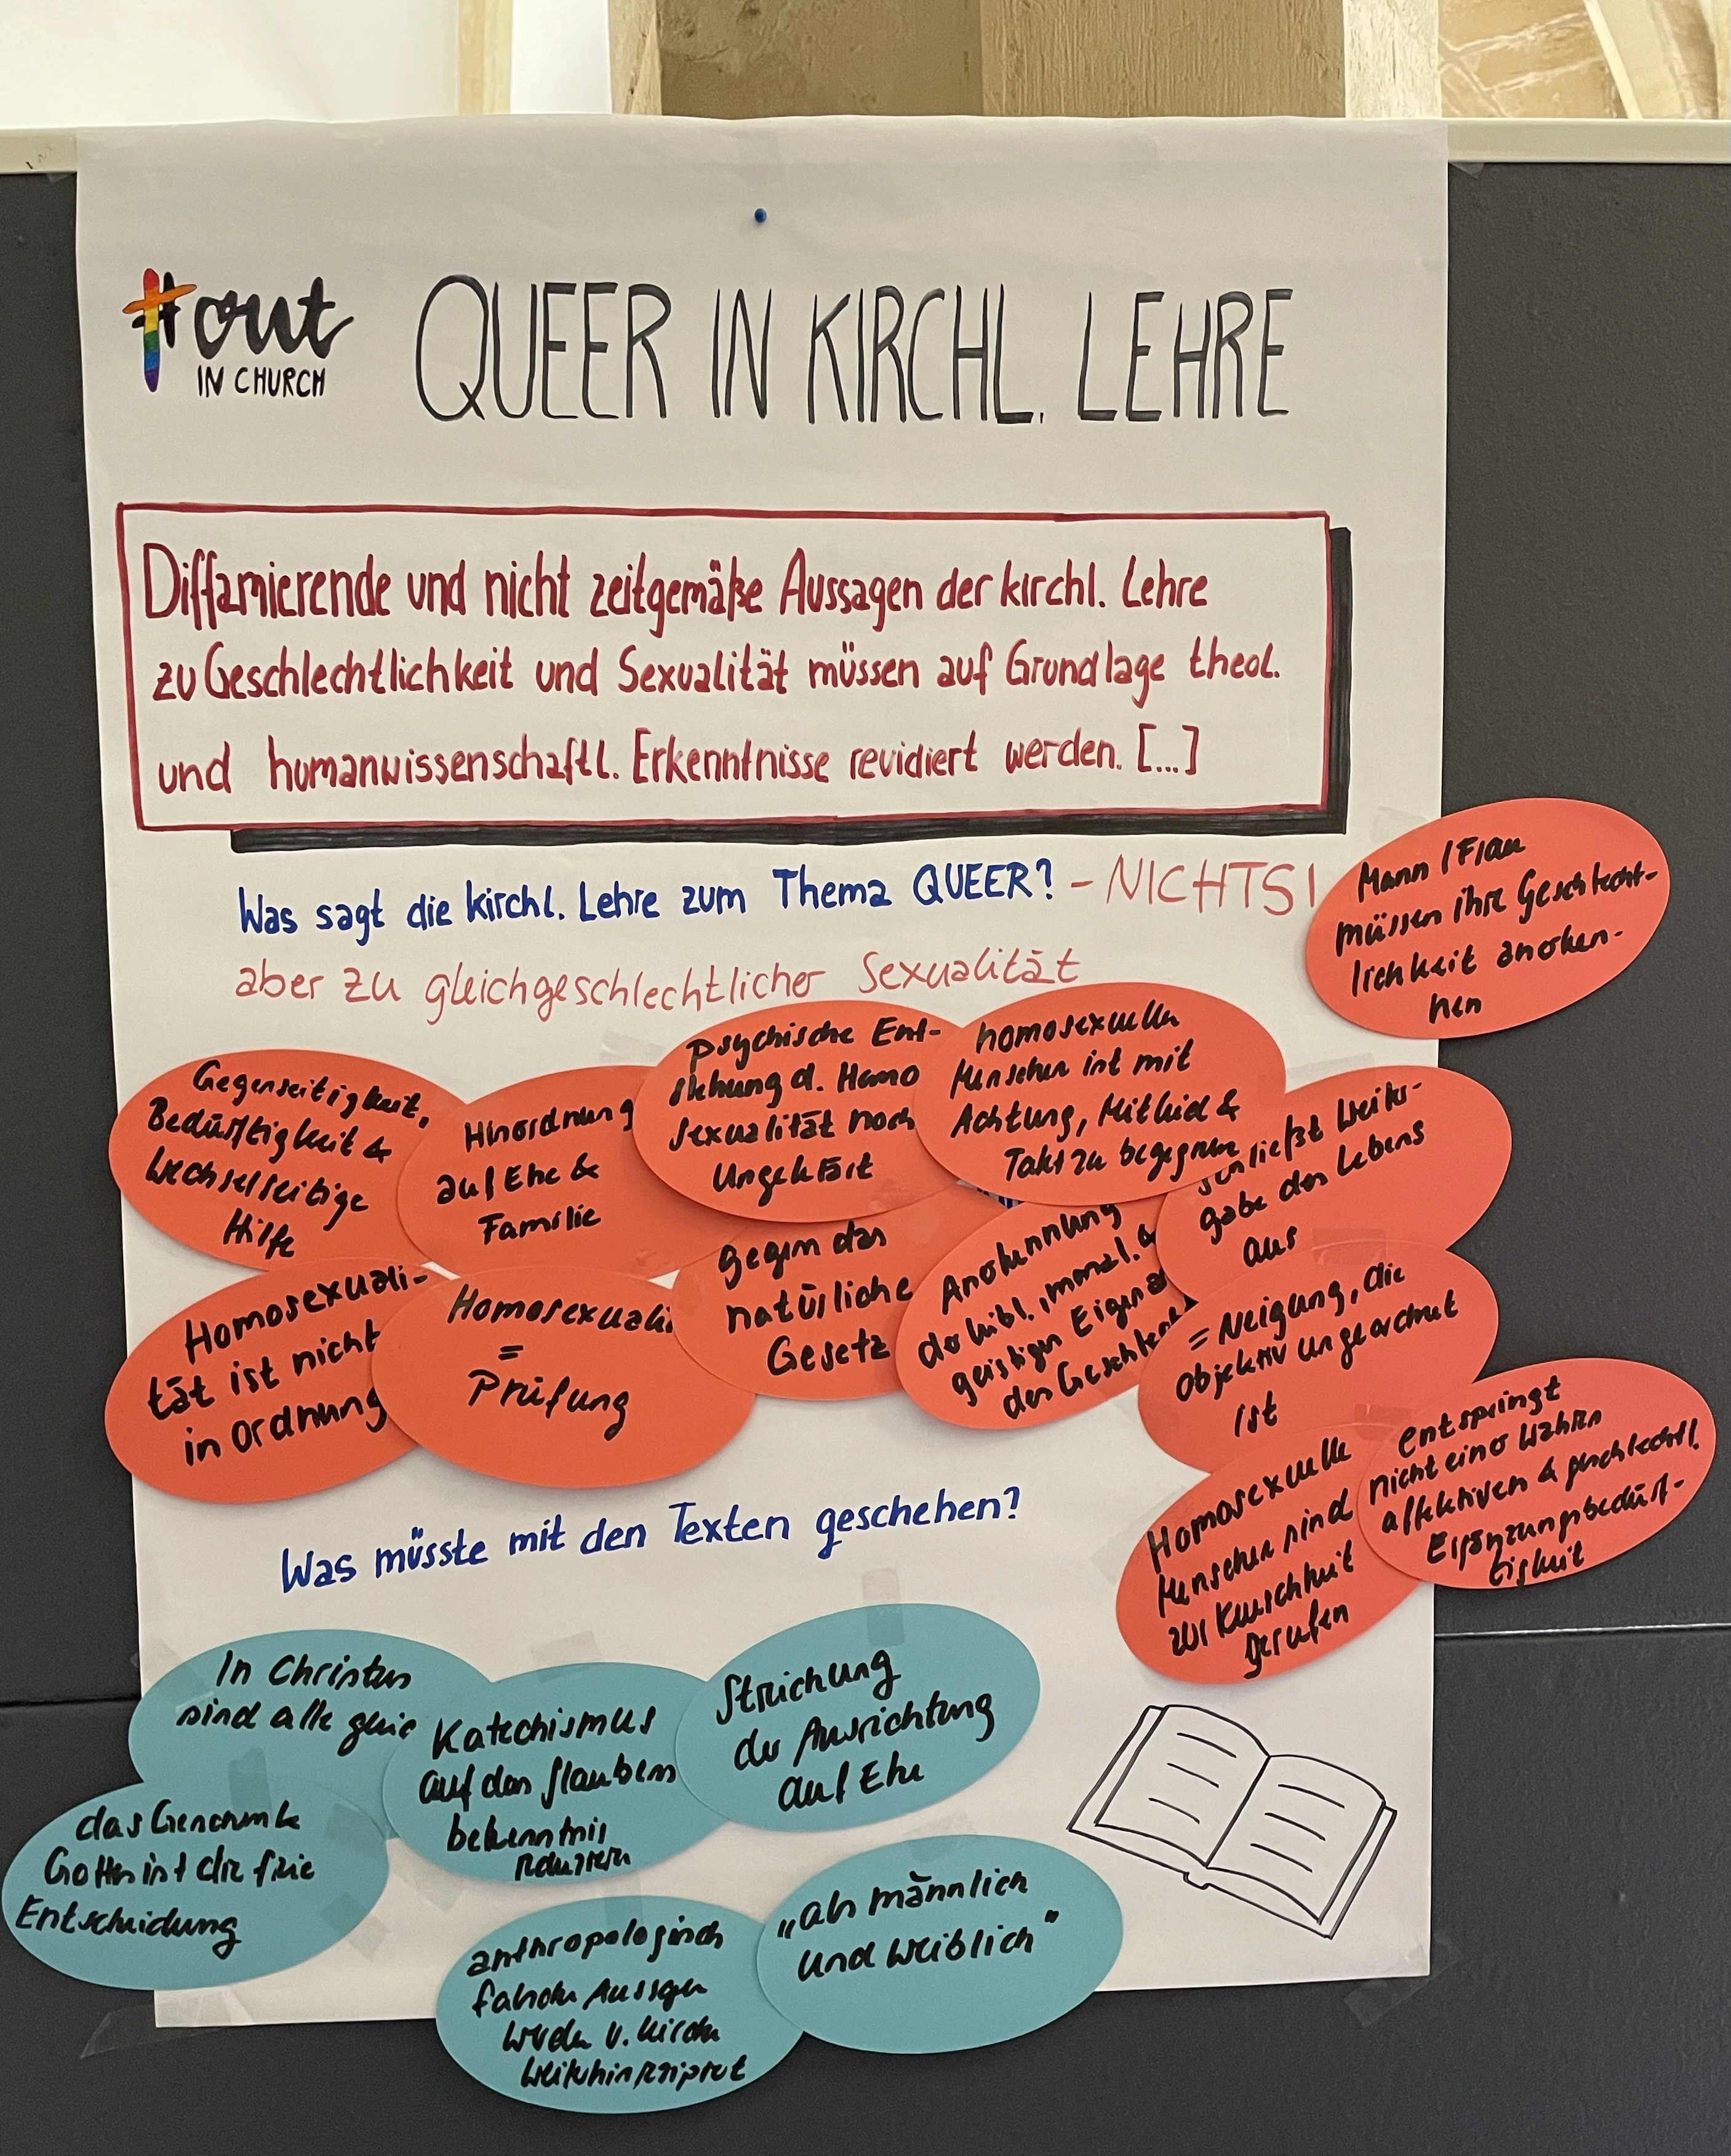 #out
IN CHURCH
QUEER IN KIRCHL. LEHRE
Diffamierende und nicht zeitgemäße Aussagen der kirchl. Lehre
zu Geschlechtlichkeit und Sexualität müssen auf Grundlage theol.
und humanwissenschaftl. Erkenntnisse revidiert werden. [...]
Was sagt die kirchl. Lehre zum Thema QUEER? - NICHTS!
aber zu gleichgeschlechtlicher Sexualität
Mann / Frau
müssen ihre Geschlecht-
lichkeit anerken-
nen
Gegenseitigkeit,
Bedürftigkeit &
wechselseitige
Hilfe
Hinordnung
auf Ehe &
Familie
Psychische Ent-
stehung d. Homo
sexualität noch
ungeklärt
homosexuellen
Menschen ist mit
Achtung, Mitleid &
Takt zu begegnen
schließt Weiter-
gabe des Lebens
aus
Homosexuali-
tät ist nicht
in Ordnung
Homosexuali
=
Prüfung
gegen das
natürliche
Gesetz
Anerkennung
der leibl., moral. &
geistigen Eigena
der Geschlecht
= Neigung, die
objektiv ungeordnet
ist
Homosexuelle
Menschen sind
zur Keuschheit
gerufen
entspringt
nicht einer wahren
affektiven & geschlechtl.
Ergänzungsbedürf-
tigkeit
Was müsste mit den Texten geschehen?
In Christus
sind alle gleic
Katechismus
auf das Glaubens
bekenntnis
reduzieren
Streichung
der Ausrichtung
auf Ehe
das Geschenk
Gottes ist die freie
Entscheidung
anthropologisch
falsche Aussagen
werden v. Kirche
weiterhin rezipiert
„als männlich
und weiblich"